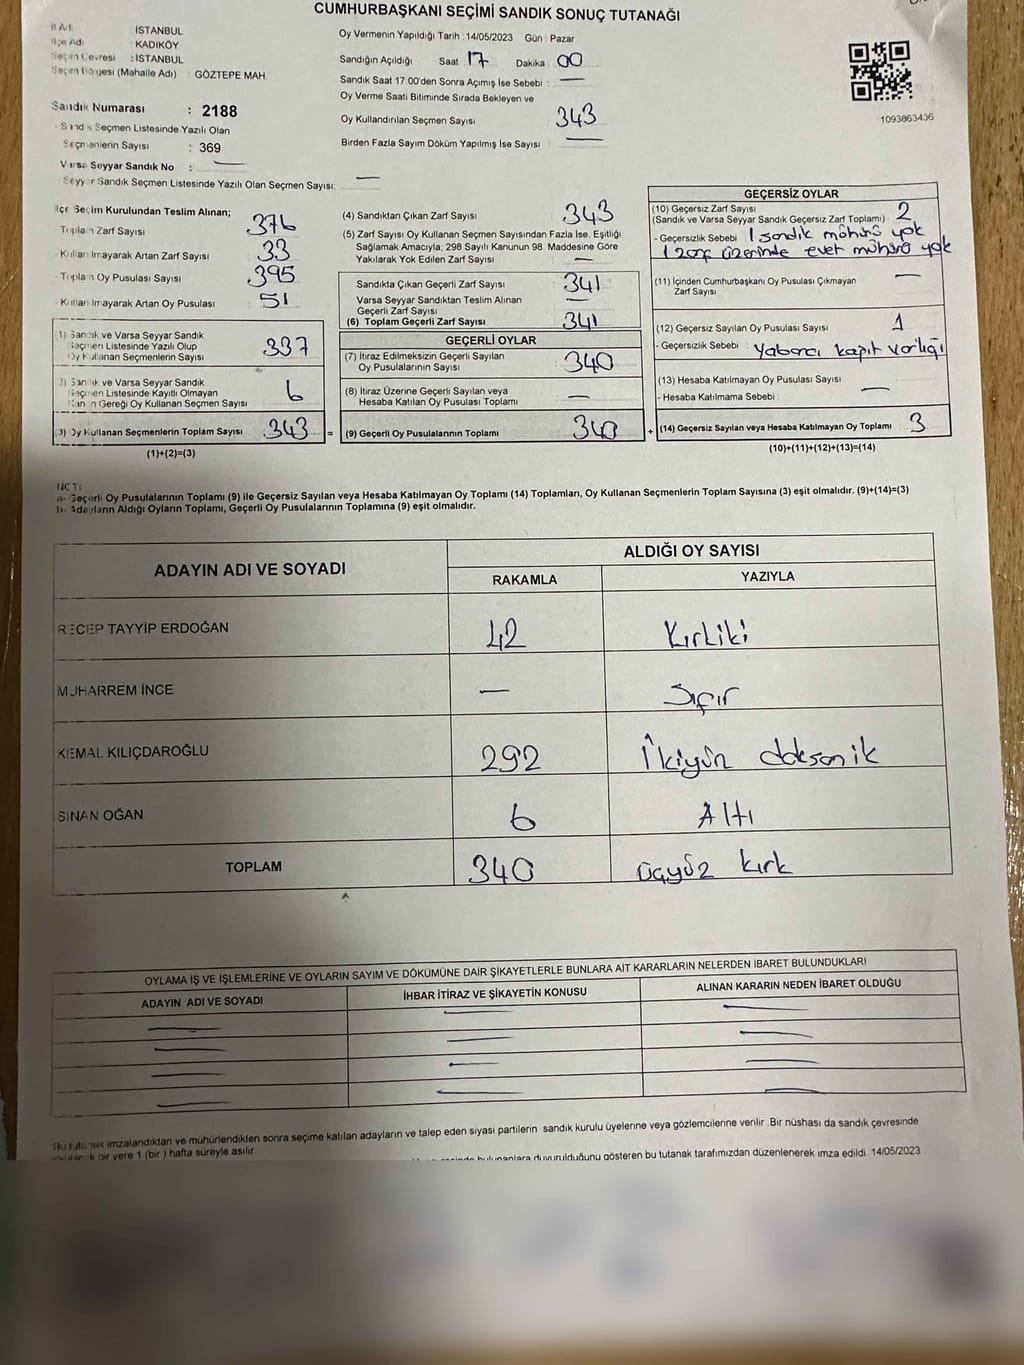 CUMHURBAŞKANI SEÇİMİ SANDIK SONUÇ TUTANAĞI
İl Adı : İSTANBUL
İlçe Adı : KADIKÖY
Seçim Çevresi : İSTANBUL
Seçim Bölgesi (Mahalle Adı) : GÖZTEPE MAH.
Sandık Numarası : 2188
Sandık Seçmen Listesinde Yazılı Olan
Seçmenlerin Sayısı : 369
Varsa Seyyar Sandık No : —
Seyyar Sandık Seçmen Listesinde Yazılı Olan Seçmen Sayısı: —
Oy Vermenin Yapıldığı Tarih : 14/05/2023 Gün : Pazar
Sandığın Açıldığı Saat : 17 Dakika : 00
Sandık Saat 17.00'den Sonra Açımış İse Sebebi : —
Oy Verme Saati Bitiminde Sırada Bekleyen ve
Oy Kullandırılan Seçmen Sayısı : 343
Birden Fazla Sayım Döküm Yapılmış İse Sayısı : —
1093863436
İlçe Seçim Kurulundan Teslim Alınan;
Toplam Zarf Sayısı : 376
Kullanılmayarak Artan Zarf Sayısı : 33
Toplam Oy Pusulası Sayısı : 395
Kullanılmayarak Artan Oy Pusulası : 51
1) Sandık ve Varsa Seyyar Sandık
Seçmen Listesinde Yazılı Olup
Oy Kullanan Seçmenlerin Sayısı 337
2) Sandık ve Varsa Seyyar Sandık
Seçmen Listesinde Kayıtlı Olmayan
Kanun Gereği Oy Kullanan Seçmen Sayısı 6
(3) Oy Kullanan Seçmenlerin Toplam Sayısı 343 =
(1)+(2)=(3)
(4) Sandıktan Çıkan Zarf Sayısı : 343
(5) Zarf Sayısı Oy Kullanan Seçmen Sayısından Fazla İse, Eşitliği
Sağlamak Amacıyla; 298 Sayılı Kanunun 98. Maddesine Göre
Yakılarak Yok Edilen Zarf Sayısı : —
Sandıkta Çıkan Geçerli Zarf Sayısı : 341
Varsa Seyyar Sandıktan Teslim Alınan
Geçerli Zarf Sayısı : —
(6) Toplam Geçerli Zarf Sayısı : 341
GEÇERLİ OYLAR
(7) İtiraz Edilmeksizin Geçerli Sayılan
Oy Pusulalarının Sayısı : 340
(8) İtiraz Üzerine Geçerli Sayılan veya
Hesaba Katılan Oy Pusulası Toplamı : —
(9) Geçerli Oy Pusulalarının Toplamı : 340 +
GEÇERSİZ OYLAR
(10) Geçersiz Zarf Sayısı
(Sandık ve Varsa Seyyar Sandık Geçersiz Zarf Toplamı) : 2
- Geçersizlik Sebebi : 1 sandık mühürü yok
1 zarf üzerinde evet mührü yok
(11) İçinden Cumhurbaşkanı Oy Pusulası Çıkmayan
Zarf Sayısı : —
(12) Geçersiz Sayılan Oy Pusulası Sayısı : 1
- Geçersizlik Sebebi : Yabancı kapıt varlığı
(13) Hesaba Katılmayan Oy Pusulası Sayısı :
- Hesaba Katılmama Sebebi : —
(14) Geçersiz Sayılan veya Hesaba Katılmayan Oy Toplamı : 3
(10)+(11)+(12)+(13)=(14)
NOT:
a- Geçerli Oy Pusulalarının Toplamı (9) ile Geçersiz Sayılan veya Hesaba Katılmayan Oy Toplamı (14) Toplamları, Oy Kullanan Seçmenlerin Toplam Sayısına (3) eşit olmalıdır. (9)+(14)=(3)
b- Adayların Aldığı Oyların Toplamı, Geçerli Oy Pusulalarının Toplamına (9) eşit olmalıdır.
ADAYIN ADI VE SOYADI ALDIĞI OY SAYISI
RAKAMLA YAZIYLA
RECEP TAYYİP ERDOĞAN 42 Kırkiki
MUHARREM İNCE — Sıfır
KEMAL KILIÇDAROĞLU 292 İkiyüz doksanik
SİNAN OĞAN 6 Altı
TOPLAM 340 üçyüz kırk
OYLAMA İŞ VE İŞLEMLERİNE VE OYLARIN SAYIM VE DÖKÜMÜNE DAİR ŞİKAYETLERLE BUNLARA AİT KARARLARIN NELERDEN İBARET BULUNDUKLARI
ADAYIN ADI VE SOYADI İHBAR İTİRAZ VE ŞİKAYETİN KONUSU ALINAN KARARIN NEDEN İBARET OLDUĞU
Bu tutanak imzalandıktan ve mühürlendikten sonra seçime katılan adayların ve talep eden siyasi partilerin sandık kurulu üyelerine veya gözlemcilerine verilir. Bir nüshası da sandık çevresinde
bir yere 1 (bir) hafta süreyle asılır
bulunanlara duyurulduğunu gösteren bu tutanak tarafımızdan düzenlenerek imza edildi. 14/05/2023